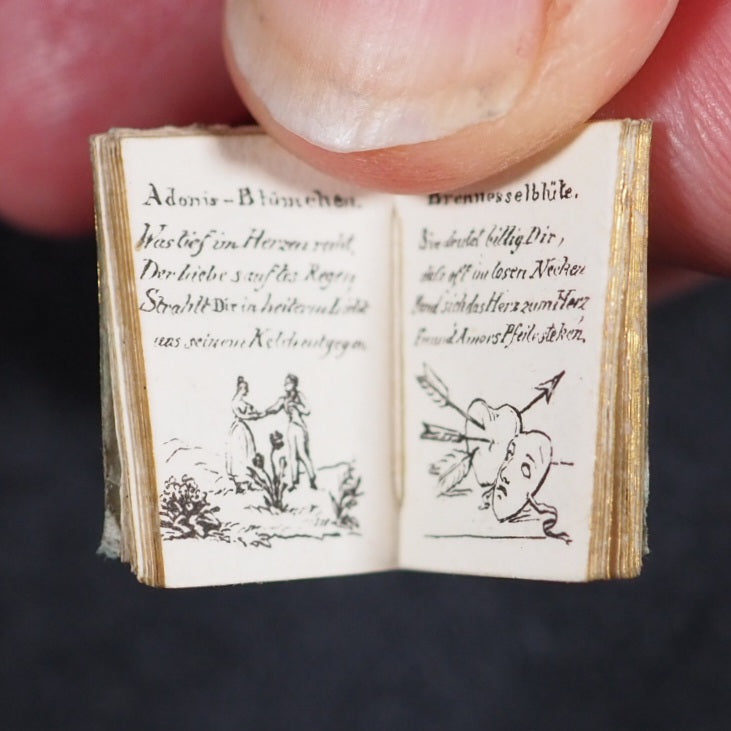 Adonis-Blümchen.
Was tief im Herzen
Der Liebe sanftes Regen,
Strahlt Dir in heiterm
uns seinem Kelch entgegen.
Brennesselblüte.
Sie deutet billig Dir,
daſs oft im losen Necken
sich das Herz zum Herz
und Amors Pfeile steken,